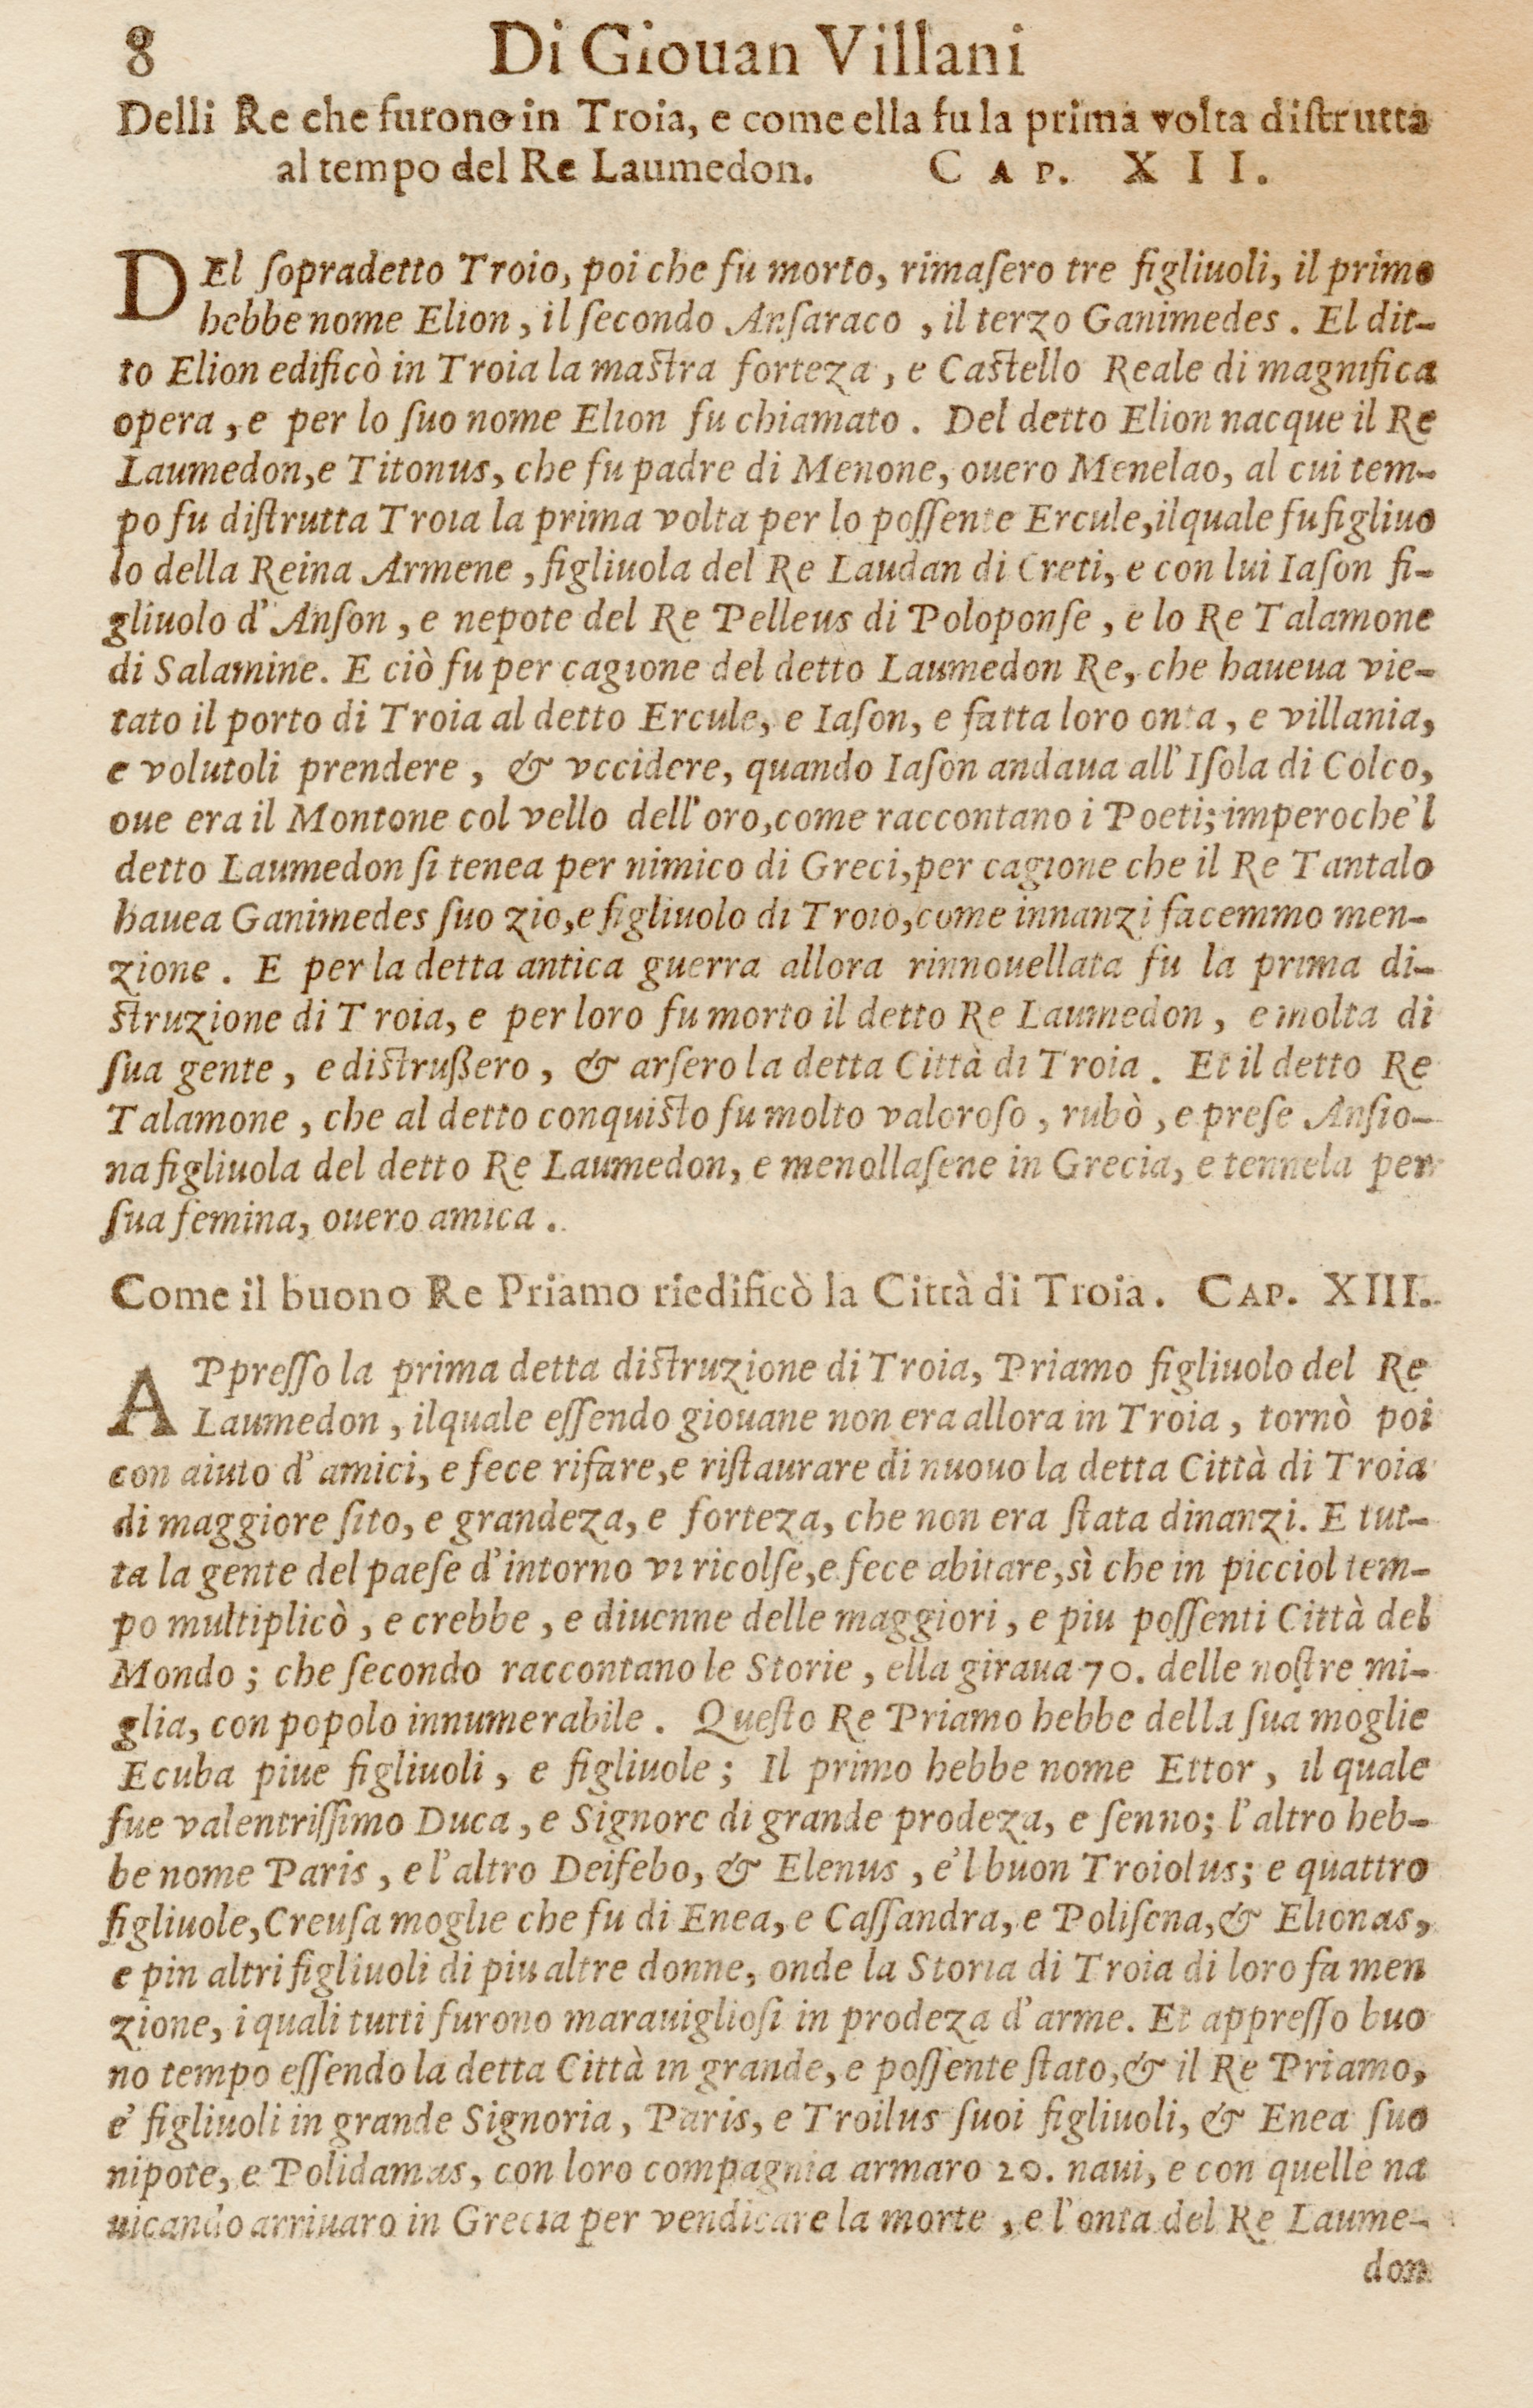 8 Di Giouan Villani
Delli Re che furono in Troia, e come ella fu la prima volta diſtrutta
al tempo del Re Laumedon. CAP. XII.
DEl ſopradetto Troio, poi che fu morto, rimaſero tre figliuoli, il primo
hebbe nome Elion, il ſecondo Anſaraco, il terzo Ganimedes. El dit-
to Elion edificò in Troia la maſtra forteza, e Caſtello Reale di magnifica
opera, e per lo ſuo nome Elion fu chiamato. Del detto Elion nacque il Re
Laumedon, e Titonus, che fu padre di Menone, ouero Menelao, al cui tem-
po fu diſtrutta Troia la prima volta per lo poſſente Ercule, ilquale fu figliuo
lo della Reina Armene, figliuola del Re Laudan di Creti, e con lui Iaſon fi-
gliuolo d' Anſon, e nepote del Re Pelleus di Poloponſe, e lo Re Talamone
di Salamine. E ciò fu per cagione del detto Laumedon Re, che haueua vie-
tato il porto di Troia al detto Ercule, e Iaſon, e fatta loro onta, e villania,
e volutoli prendere, & vccidere, quando Iaſon andaua all' Iſola di Colco,
oue era il Montone col vello dell' oro, come raccontano i Poeti; imperoche'l
detto Laumedon ſi tenea per nimico di Greci, per cagione che il Re Tantalo
hauea Ganimedes ſuo zio, e figliuolo di Troio, come innanzi facemmo men-
zione. E per la detta antica guerra allora rinnouellata fu la prima di-
ſtruzione di Troia, e per loro fu morto il detto Re Laumedon, e molta di
ſua gente, e diſtrußero, & arſero la detta Città di Troia. Et il detto Re
Talamone, che al detto conquiſto fu molto valoroſo, rubò, e preſe Anſio-
na figliuola del detto Re Laumedon, e menollaſene in Grecia, e tennela per
ſua femina, ouero amica.
Come il buono Re Priamo riedificò la Città di Troia. CAP. XIII.
APpreſſo la prima detta diſtruzione di Troia, Priamo figliuolo del Re
Laumedon, ilquale eſſendo giouane non era allora in Troia, tornò poi
con aiuto d' amici, e fece rifare, e riſtaurare di nuouo la detta Città di Troia
di maggiore ſito, e grandeza, e forteza, che non era ſtata dinanzi. E tut-
ta la gente del paeſe d' intorno vi ricolſe, e fece abitare, sì che in picciol tem-
po multiplicò, e crebbe, e diuenne delle maggiori, e piu poſſenti Città del
Mondo; che ſecondo raccontano le Storie, ella giraua 70. delle noſtre mi-
glia, con popolo innumerabile. Queſto Re Priamo hebbe della ſua moglie
Ecuba piue figliuoli, e figliuole; Il primo hebbe nome Ettor, il quale
fue valentriſſimo Duca, e Signore di grande prodeza, e ſenno; l'altro heb-
be nome Paris, e l'altro Deifebo, & Elenus, e'l buon Troiolus; e quattro
figliuole, Creuſa moglie che fu di Enea, e Caſſandra, e Poliſena, & Elionas,
e pin altri figliuoli di piu altre donne, onde la Storia di Troia di loro fa men
zione, i quali tutti furono marauiglioſi in prodeza d' arme. Et appreſſo buo
no tempo eſſendo la detta Città in grande, e poſſente ſtato, & il Re Priamo,
e' figliuoli in grande Signoria, Paris, e Troilus ſuoi figliuoli, & Enea ſuo
nipote, e Polidamas, con loro compagnia armaro 20. naui, e con quelle na
uicando arriuaro in Grecia per vendicare la morte, e l'onta del Re Laume-
don